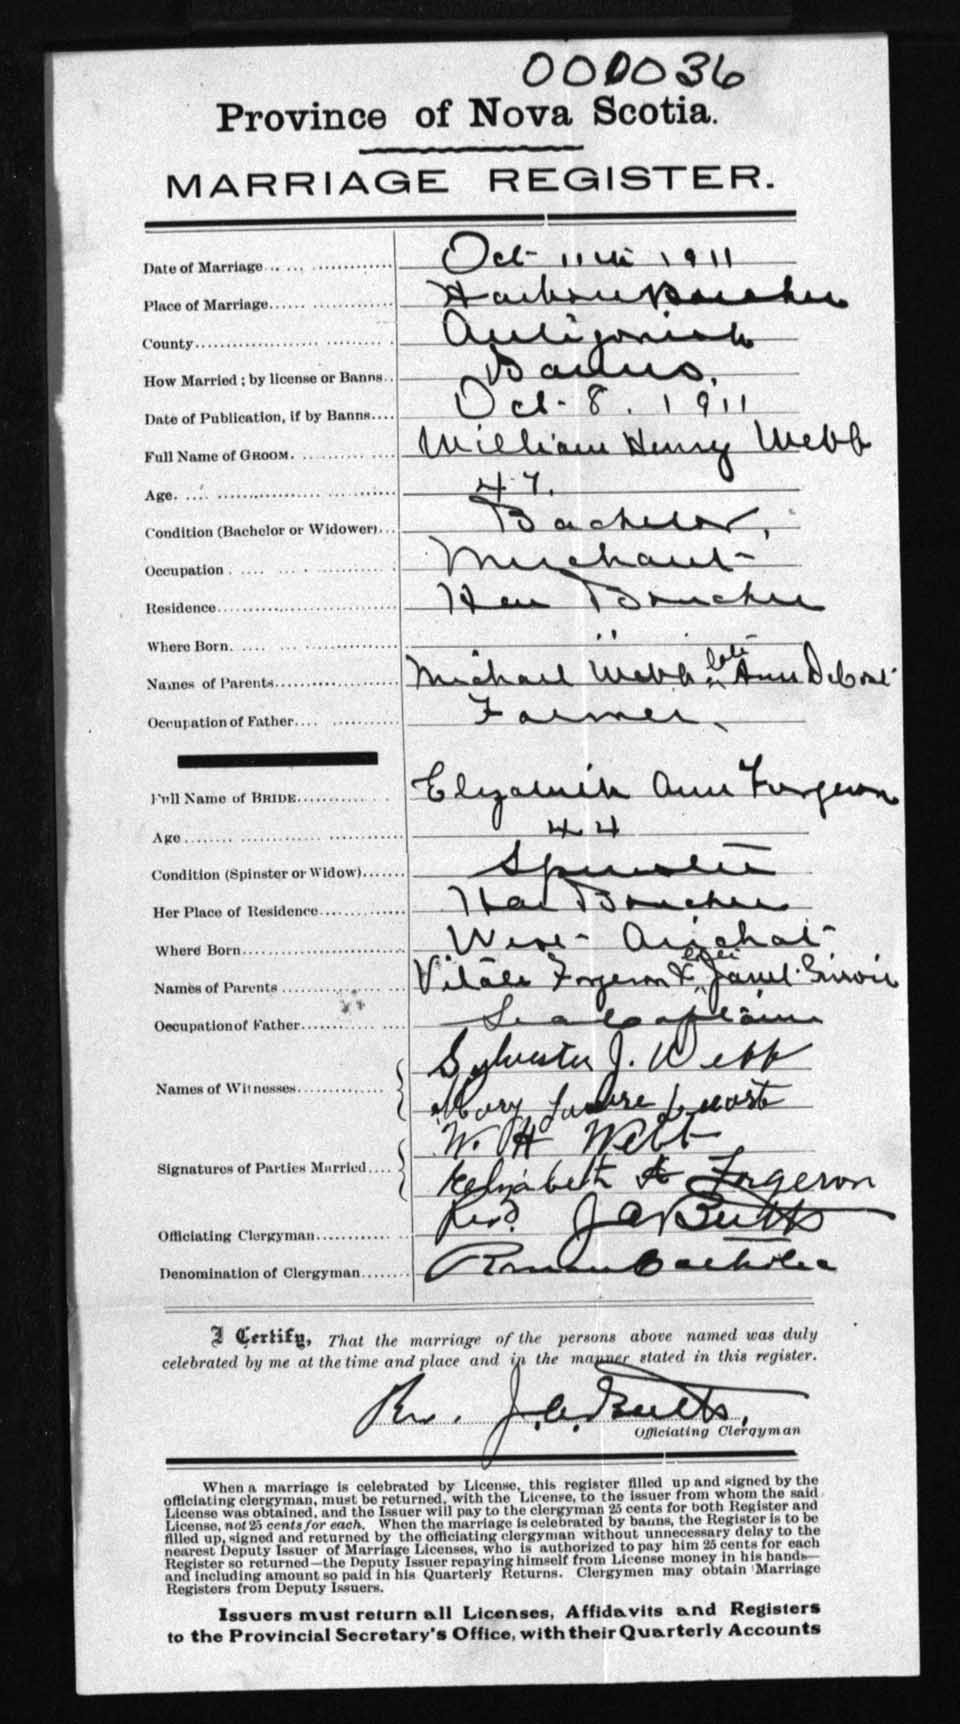 000036
Province of Nova Scotia.
MARRIAGE REGISTER.
Date of Marriage Oct 11th 1911
Place of Marriage Harbour Boucher
County Antigonish
How Married; by license or Banns.. Banns.
Date of Publication, if by Banns.... Oct. 8. 1911
Full Name of GROOM. William Henry Webb
Age. 47.
Condition (Bachelor or Widower)... Bachelor,
Occupation Merchant
Residence Har Boucher
Where Born. "
Names of Parents Michael Webb late Ann
Occupation of Father Farmer
Full Name of BRIDE Elizabeth Ann Forgeron
Age 44
Condition (Spinster or Widow) Spinster
Her Place of Residence Har Boucher
Where Born West Arichat
Names of Parents Vitale Forgeron &
Occupation of Father Sea Captain
Names of Witnesses Sylvester J. Webb
Mary
Signatures of Parties Married W. H Webb
Elizabeth A Forgeron
Officiating Clergyman Revd. J A Butts
Denomination of Clergyman Roman Catholic
I Certify, That the marriage of the persons above named was duly
celebrated by me at the time and place and in the manner stated in this register.
Rev. J. A. Butts.
Officiating Clergyman
When a marriage is celebrated by License, this register filled up and signed by the
officiating clergyman, must be returned, with the License, to the issuer from whom the said
License was obtained, and the Issuer will pay to the clergyman 25 cents for both Register and
License, not 25 cents for each. When the marriage is celebrated by banns, the Register is to be
filled up, signed and returned by the officiating clergyman without unnecessary delay to the
nearest Deputy Issuer of Marriage Licenses, who is authorized to pay him 25 cents for each
Register so returned—the Deputy Issuer repaying himself from License money in his hands—
and including amount so paid in his Quarterly Returns. Clergymen may obtain Marriage
Registers from Deputy Issuers.
Issuers must return all Licenses, Affidavits and Registers
to the Provincial Secretary's Office, with their Quarterly Accounts